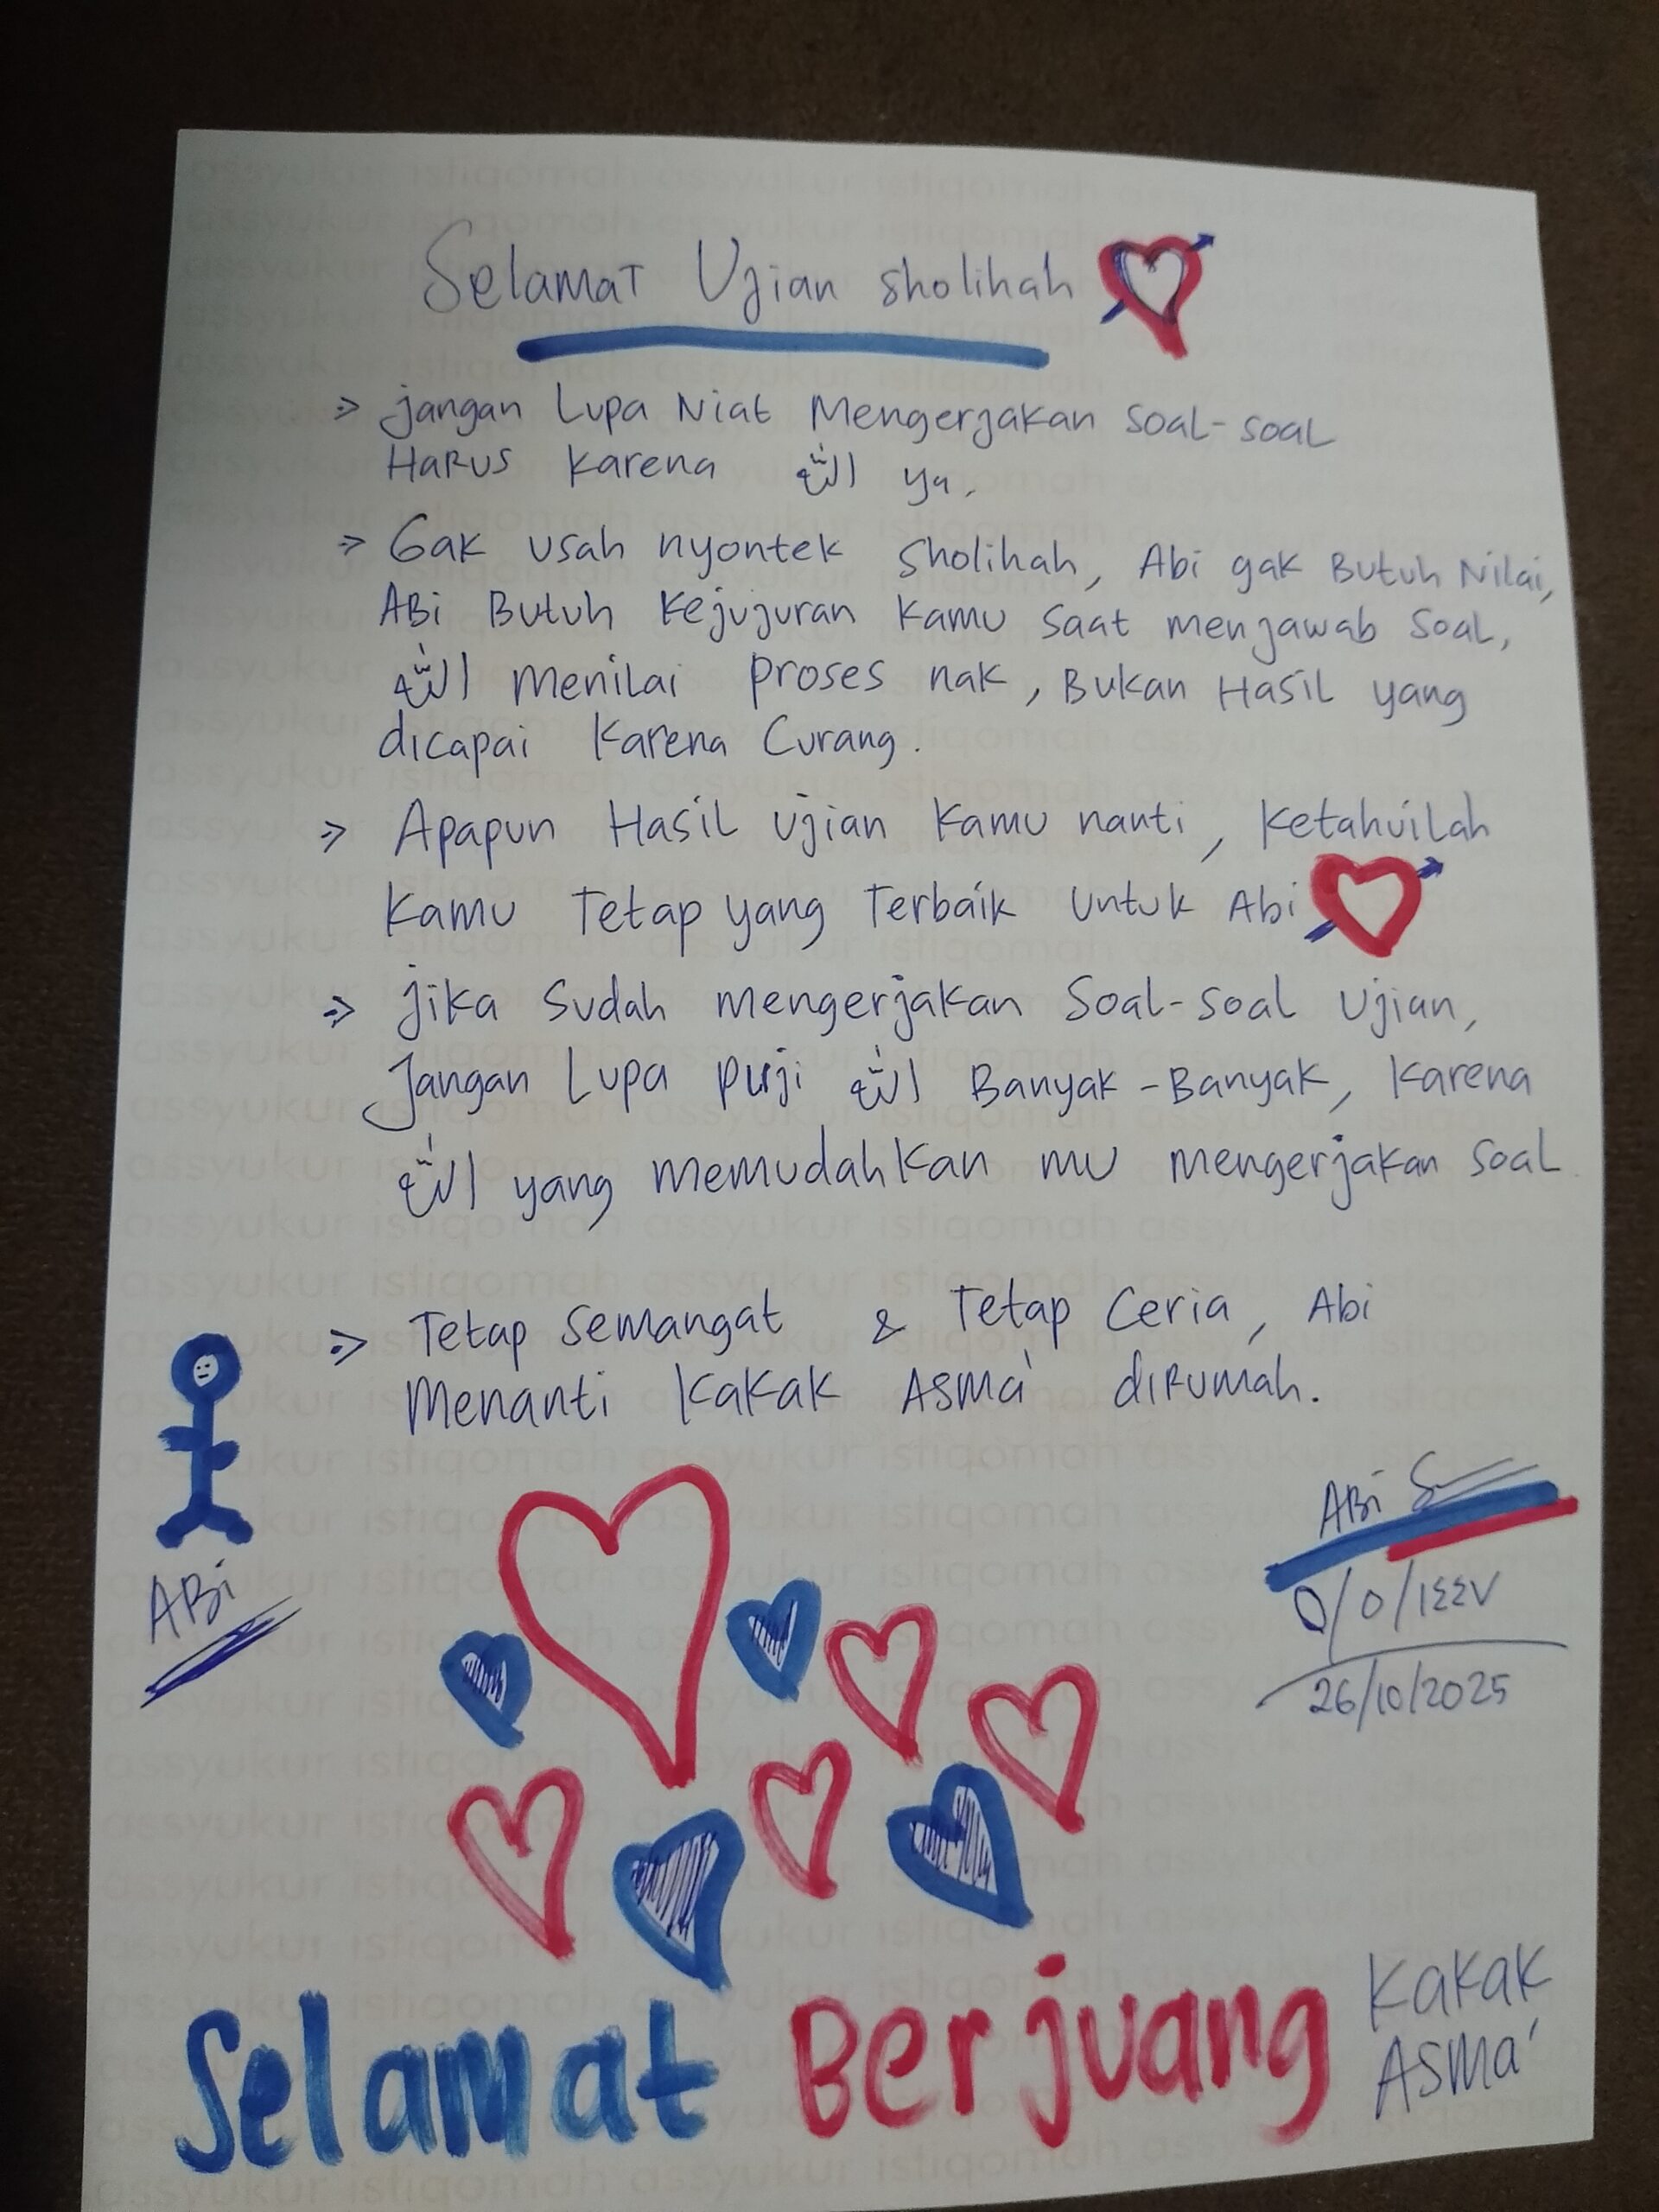 Selamat Ujian Sholihah
=> jangan Lupa Niat Mengerjakan Soal-soal
Harus karena الله ya.
=> Gak usah nyontek Sholihah, Abi gak Butuh Nilai,
Abi Butuh Kejujuran Kamu Saat menjawab Soal,
الله menilai proses nak, Bukan Hasil yang
dicapai Karena Curang.
=> Apapun Hasil Ujian Kamu nanti, Ketahuilah
Kamu Tetap yang Terbaik Untuk Abi
=> jika Sudah mengerjakan Soal-soal Ujian,
Jangan Lupa puji الله Banyak-Banyak, Karena
الله yang memudahkan mu mengerjakan Soal
=> Tetap Semangat & Tetap Ceria, Abi
Menanti Kakak Asma' dirumah.
ABi
ABi
٥/٥/١٤٤٧
26/10/2025
Selamat Berjuang Kakak
Asma'